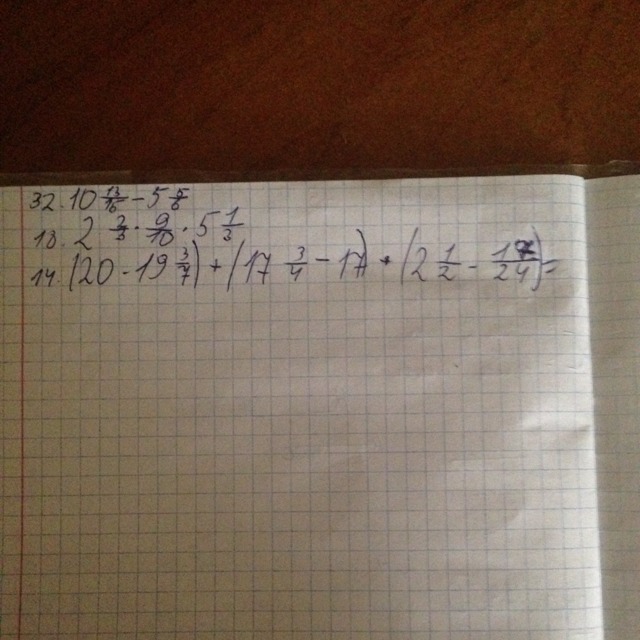 32. 10 13/16 - 5
18. 2 2/3 · 9/10 · 5 1/3
14. (20 - 19 3/4) + (17 3/4 - 17) + (2 1/2 - /24) =